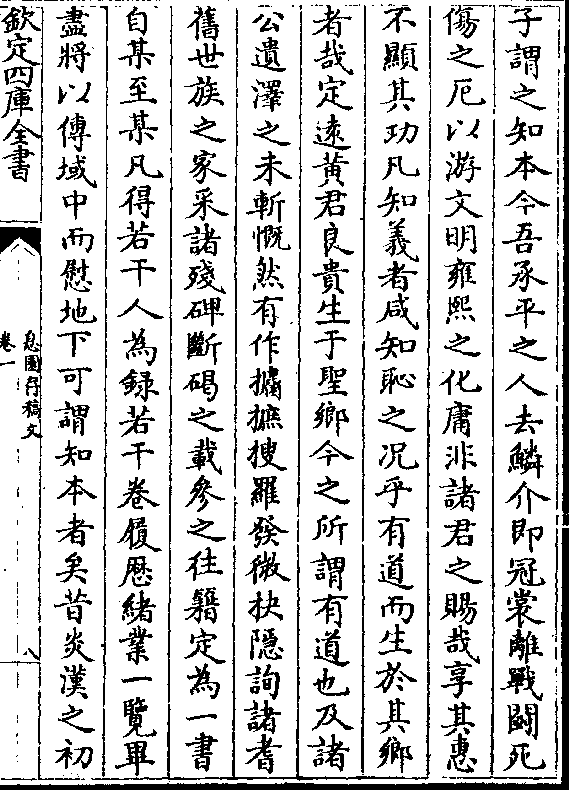 子謂之知本今吾承平之人去鱗介即冠裳離戰鬭死
傷之厄以游文明雍熙之化庸非諸君之賜哉享其惠
不顯其功凡知義者咸知恥之况乎有道而生於其鄉
者哉定逺黄君良貴生于聖鄉今之所謂有道也及諸
公遺澤之未斬慨然有作攟摭搜羅發微抉隠詢諸耆
舊世族之家采諸殘碑斷碣之載參之往籍定為一書
自某至某凡得若干人為録若干卷履歴緒業一覽畢
盡將以傳域中而慰地下可謂知本者矣昔炎漢之初
欽定四庫全書
息園存稿文
卷一
八